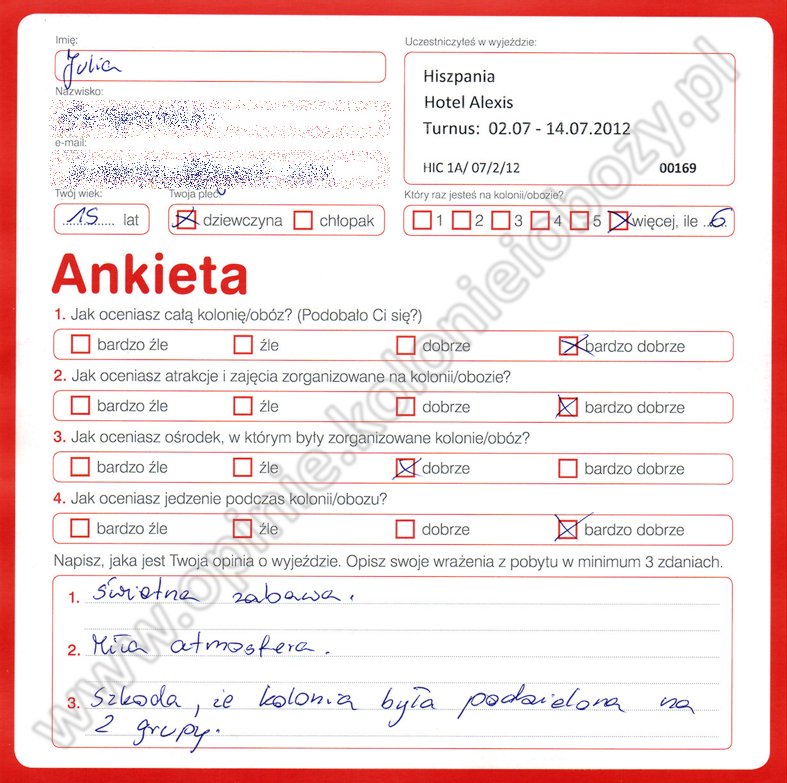 Imię:
Julia
Nazwisko:
e-mail:
Twój wiek:
15 lat
Twoja płeć:
dziewczyna chłopak
Uczestniczyłeś w wyjeździe:
Hiszpania
Hotel Alexis
Turnus: 02.07 - 14.07.2012
HIC 1A/ 07/2/12 00169
Który raz jesteś na kolonii/obozie?
1 2 3 4 5 więcej, ile ..6..
Ankieta
1. Jak oceniasz całą kolonię/obóz? (Podobało Ci się?)
bardzo źle źle dobrze bardzo dobrze
2. Jak oceniasz atrakcje i zajęcia zorganizowane na kolonii/obozie?
bardzo źle źle dobrze bardzo dobrze
3. Jak oceniasz ośrodek, w którym były zorganizowane kolonie/obóz?
bardzo źle źle dobrze bardzo dobrze
4. Jak oceniasz jedzenie podczas kolonii/obozu?
bardzo źle źle dobrze bardzo dobrze
Napisz, jaka jest Twoja opinia o wyjeździe. Opisz swoje wrażenia z pobytu w minimum 3 zdaniach.
1. świetna zabawa.
2. Miła atmosfera.
3. Szkoda, że kolonia była podzielona na
2 grupy.
www.opinie.kolonieiobozy.pl